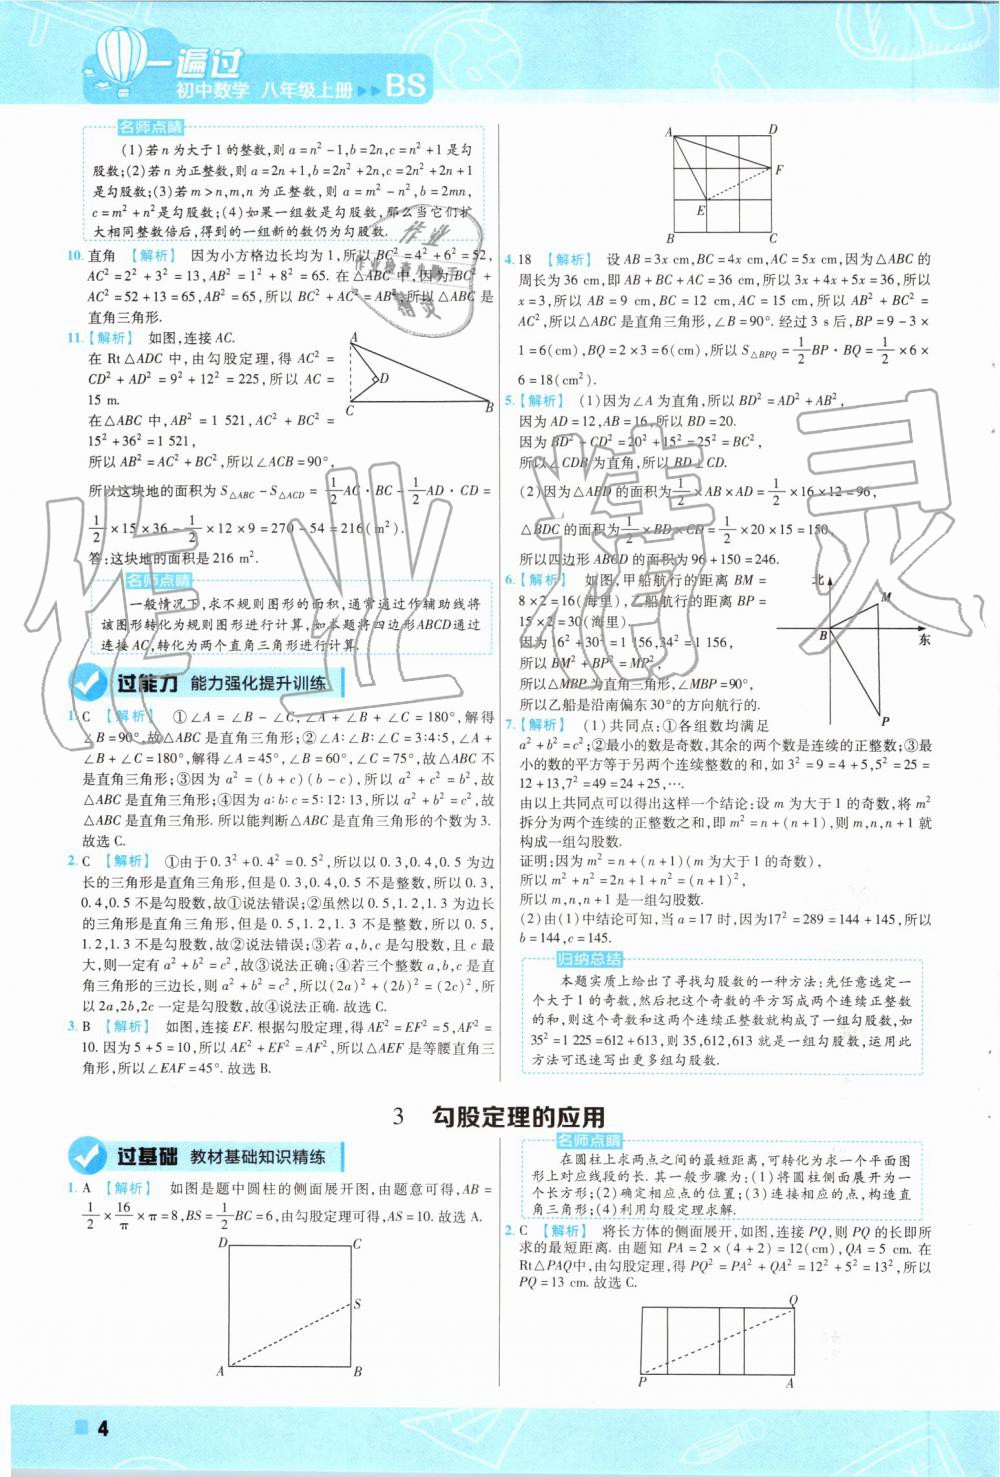 一遍过
初中数学 八年级上册 ▶▶ BS
名师点睛
(1)若n为大于1的整数,则a=n²-1,b=2n,c=n²+1是勾
股数;(2)若n为正整数,则a=2n+1,b=2n²+2n,c=2n²+2n+1
是勾股数;(3)若m>n,m,n为正整数,则a=m²-n²,b=2mn,
c=m²+n²是勾股数;(4)如果一组数是勾股数,那么当它们扩
大相同整数倍后,得到的一组新的数仍为勾股数.
10. 直角 【解析】 因为小方格边长均为1,所以BC²=4²+6²=52,
AC²=2²+3²=13,AB²=1²+8²=65.在△ABC中,因为BC²+
AC²=52+13=65,AB²=65,所以BC²+AC²=AB²,所以△ABC是
直角三角形.
11.【解析】 如图,连接AC.
在Rt△ADC中,由勾股定理,得AC²=
CD²+AD²=9²+12²=225,所以AC=
15 m.
在△ABC中,AB²=1 521,AC²+BC²=
15²+36²=1 521,
所以AB²=AC²+BC²,所以∠ACB=90°,
所以这块地的面积为S△ABC-S△ACD=1/2AC·BC-1/2AD·CD=
1/2×15×36-1/2×12×9=270-54=216(m²).
答:这块地的面积是216 m².
A
D
C
B
名师点睛
一般情况下,求不规则图形的面积,通常通过作辅助线将
该图形转化为规则图形进行计算,如本题将四边形ABCD通过
连接AC,转化为两个直角三角形进行计算.
过能力 能力强化提升训练
1. C 【解析】 ①∠A=∠B-∠C,∠A+∠B+∠C=180°,解得
∠B=90°,故△ABC是直角三角形;②∠A:∠B:∠C=3:4:5,∠A+
∠B+∠C=180°,解得∠A=45°,∠B=60°,∠C=75°,故△ABC不
是直角三角形;③因为a²=(b+c)(b-c),所以a²+c²=b²,故
△ABC是直角三角形;④因为a:b:c=5:12:13,所以a²+b²=c²,故
△ABC是直角三角形.所以能判断△ABC是直角三角形的个数为3.
故选C.
2. C 【解析】 ①由于0.3²+0.4²=0.5²,所以以0.3,0.4,0.5为边
长的三角形是直角三角形,但是0.3,0.4,0.5不是整数,所以0.3,
0.4,0.5不是勾股数,故①说法错误;②虽然以0.5,1.2,1.3为边长
的三角形是直角三角形,但是0.5,1.2,1.3不是整数,所以0.5,
1.2,1.3不是勾股数,故②说法错误;③若a,b,c是勾股数,且c最
大,则一定有a²+b²=c²,故③说法正确;④若三个整数a,b,c是直
角三角形的三边长,则a²+b²=c²,所以(2a)²+(2b)²=(2c)²,所
以2a,2b,2c一定是勾股数,故④说法正确.故选C.
3. B 【解析】 如图,连接EF.根据勾股定理,得AE²=EF²=5,AF²=
10.因为5+5=10,所以AE²+EF²=AF²,所以△AEF是等腰直角三角
形,所以∠EAF=45°.故选B.
A
D
F
E
B
C
4. 18 【解析】 设AB=3x cm,BC=4x cm,AC=5x cm,因为△ABC的
周长为36 cm,即AB+BC+AC=36 cm,所以3x+4x+5x=36,所以
x=3,所以AB=9 cm,BC=12 cm,AC=15 cm,所以AB²+BC²=
AC²,所以△ABC是直角三角形,∠B=90°.经过3 s后,BP=9-3×
1=6(cm),BQ=2×3=6(cm),所以S△BPQ=1/2BP·BQ=1/2×6×
6=18(cm²).
5.【解析】 (1)因为∠A为直角,所以BD²=AD²+AB²,
因为AD=12,AB=16,所以BD=20.
因为BD²+CD²=20²+15²=25²=BC²,
所以∠CDB为直角,所以BD⊥CD.
(2)因为△ABD的面积为1/2×AB×AD=1/2×16×12=96,
△BDC的面积为1/2×BD×CD=1/2×20×15=150,
所以四边形ABCD的面积为96+150=246.
6.【解析】 如图,甲船航行的距离BM=
8×2=16(海里),乙船航行的距离BP=
15×2=30(海里).
因为16²+30²=1 156,34²=1 156,
所以BM²+BP²=MP²,
所以△MBP为直角三角形,∠MBP=90°,
所以乙船是沿南偏东30°的方向航行的.
北
M
B
东
P
7.【解析】 (1)共同点:①各组数均满足
a²+b²=c²;②最小的数是奇数,其余的两个数是连续的正整数;③最
小的数的平方等于另两个连续整数的和,如3²=9=4+5,5²=25=
12+13,7²=49=24+25,….
由以上共同点可以得出这样一个结论:设m为大于1的奇数,将m²
拆分为两个连续的正整数之和,即m²=n+(n+1),则m,n,n+1就
构成一组勾股数.
证明:因为m²=n+(n+1)(m为大于1的奇数),
所以m²+n²=2n+1+n²=(n+1)²,
所以m,n,n+1是一组勾股数.
(2)由(1)中结论可知,当a=17时,因为17²=289=144+145,所以
b=144,c=145.
归纳总结
本题实质上给出了寻找勾股数的一种方法:先任意选定一
个大于1的奇数,然后把这个奇数的平方写成两个连续正整数
的和,则这个奇数和这两个连续正整数就构成了一组勾股数,如
35²=1 225=612+613,则35,612,613就是一组勾股数,运用此
方法可迅速写出更多组勾股数.
3 勾股定理的应用
过基础 教材基础知识精练
1. A 【解析】 如图是题中圆柱的侧面展开图,由题意可得,AB=
1/2×16/π×π=8,BS=1/2BC=6,由勾股定理可得,AS=10.故选A.
D
C
S
A
B
名师点睛
在圆柱上求两点之间的最短距离,可转化为求一个平面图
形上对应线段的长.其一般步骤为:(1)将圆柱侧面展开为一
个长方形;(2)确定相应点的位置;(3)连接相应的点,构造直
角三角形;(4)利用勾股定理求解.
2. C 【解析】 将长方体的侧面展开,如图,连接PQ,则PQ的长即所
求的最短距离.由题知PA=2×(4+2)=12(cm),QA=5 cm.在
Rt△PAQ中,由勾股定理,得PQ²=PA²+QA²=12²+5²=13²,所以
PQ=13 cm.故选C.
Q
P
A
4
作业精灵